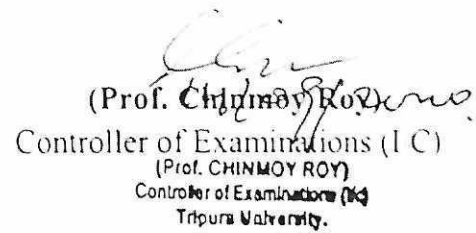 (Prof. Chinmoy Roy)
Controller of Examinations (I C)
(Prof. CHINMOY ROY)
Controller of Examinations (I/c)
Tripura University.